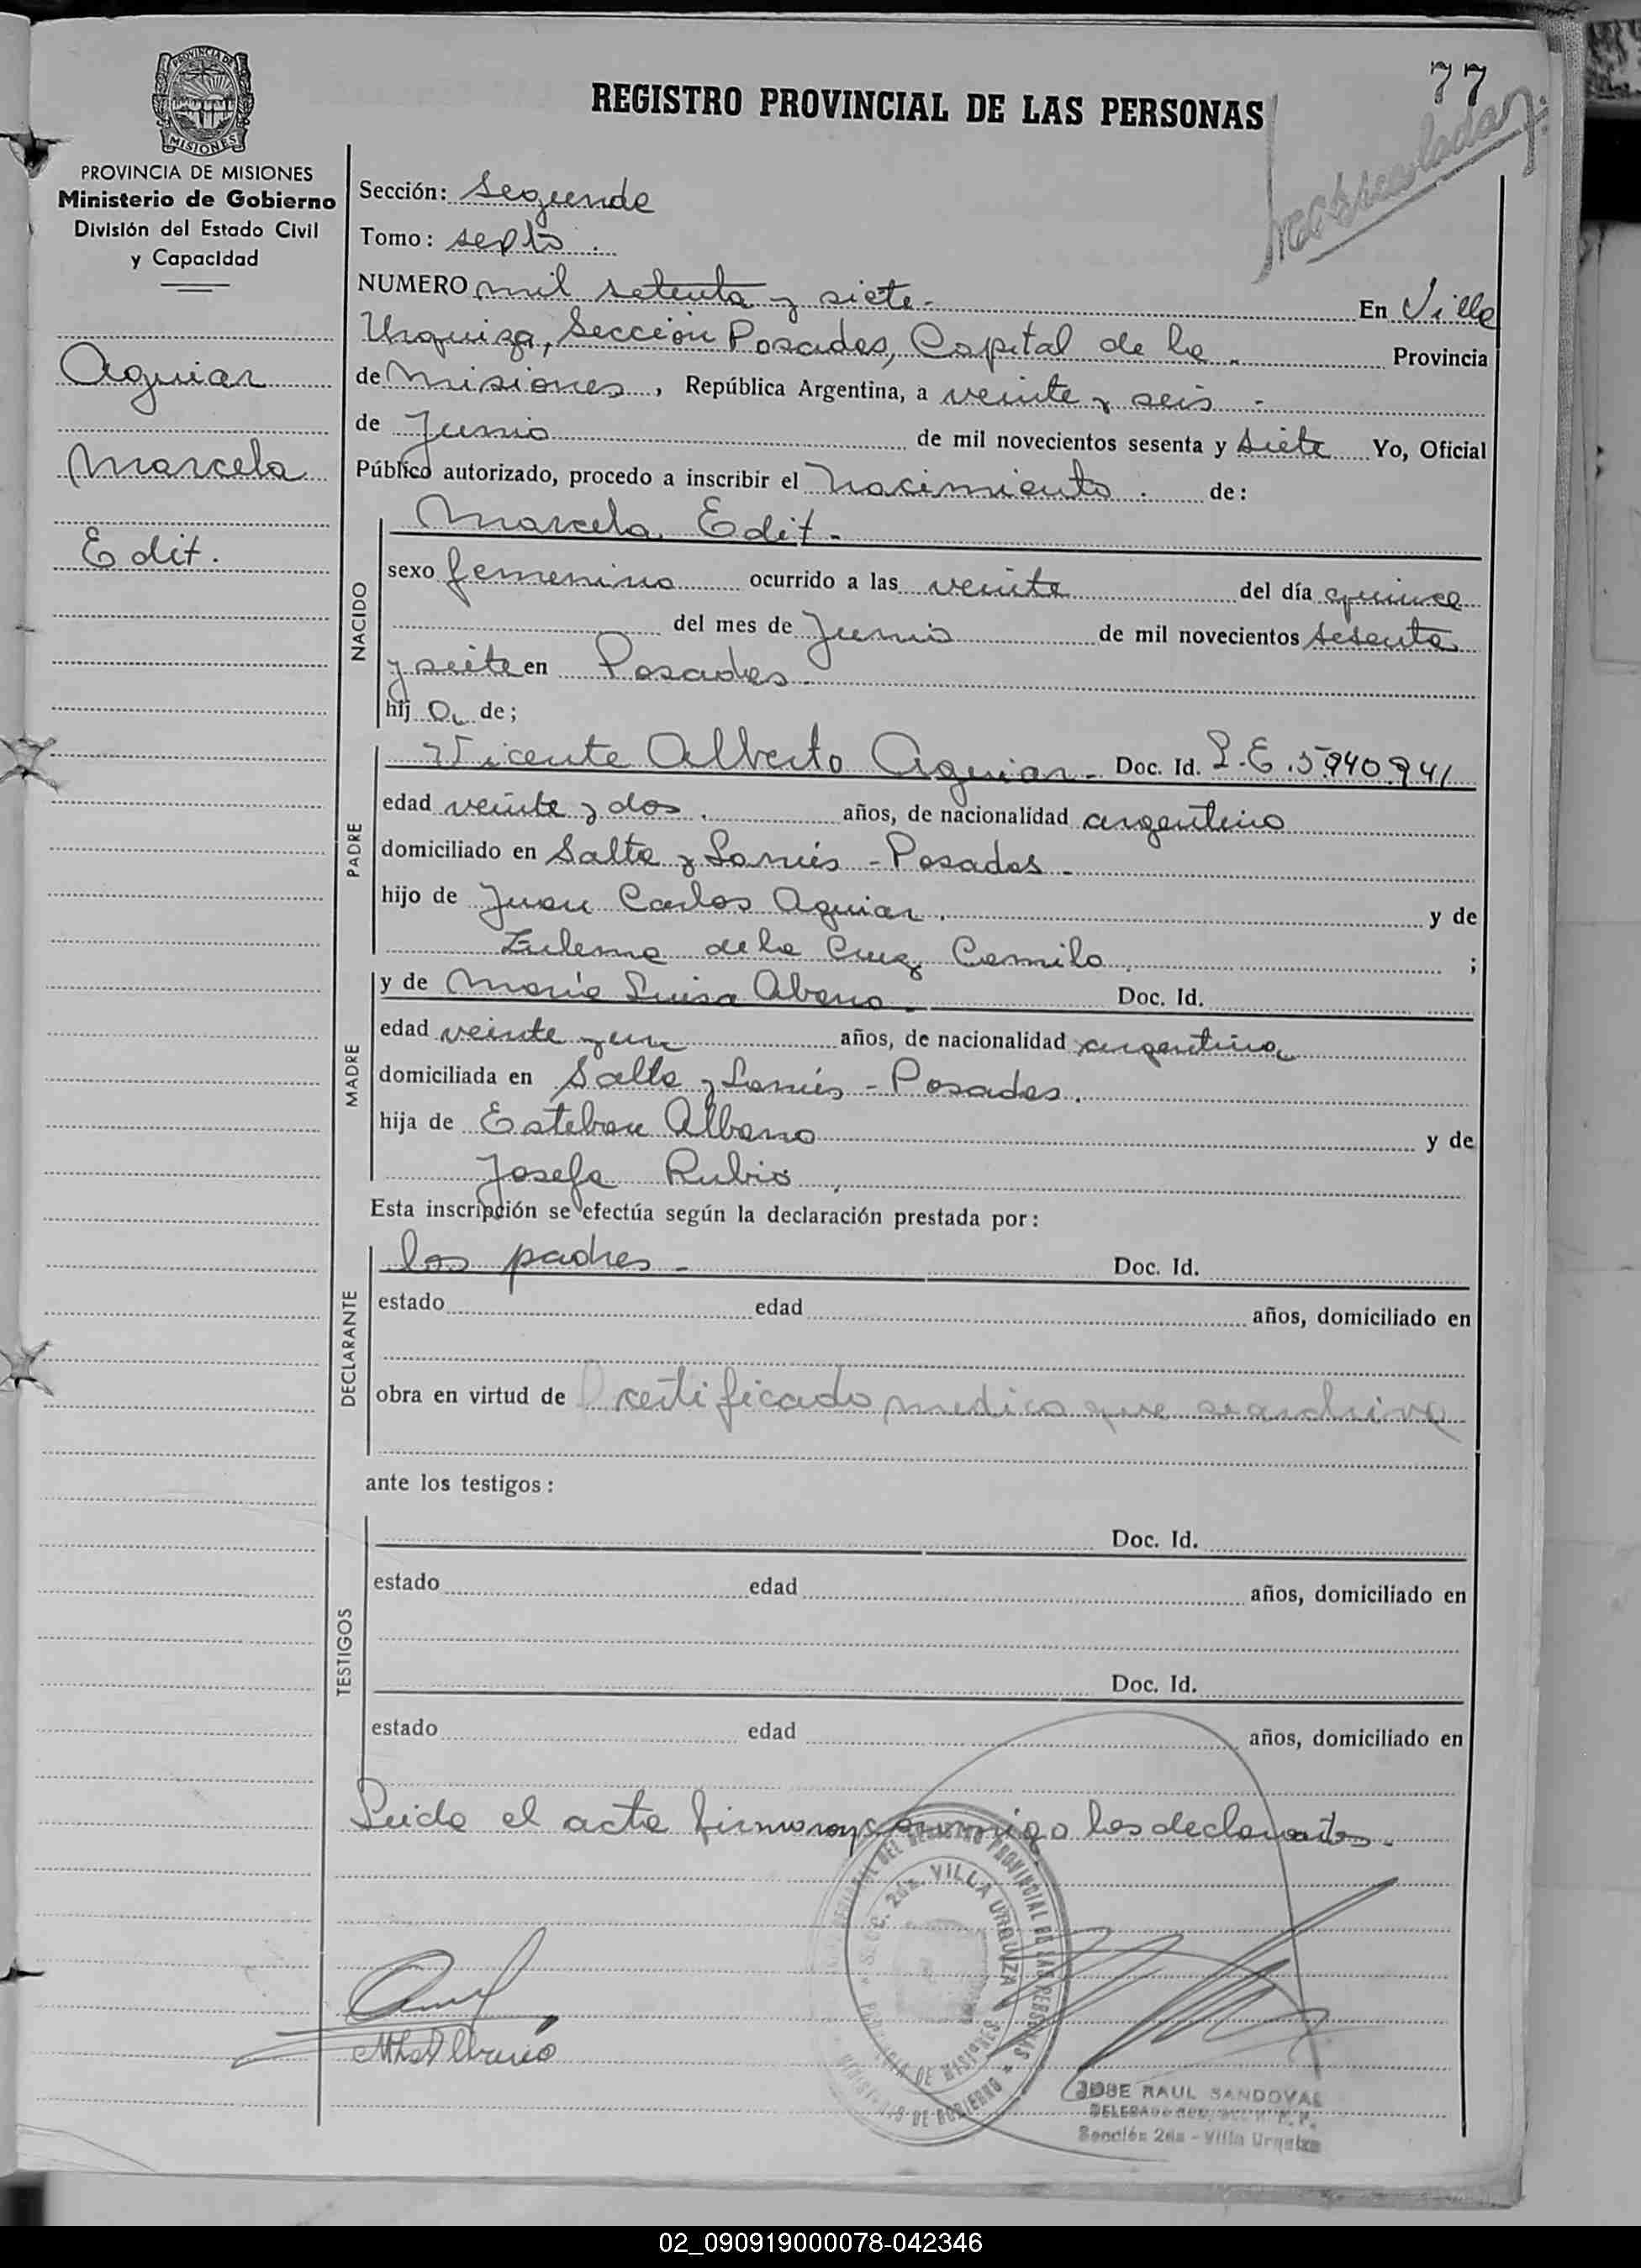 77
REGISTRO PROVINCIAL DE LAS PERSONAS
Matriculada
PROVINCIA DE MISIONES
MISIONES
PROVINCIA DE MISIONES
Ministerio de Gobierno
División del Estado Civil
y Capacidad
Aguiar
Marcela
Edit.
Sección: Segunda
Tomo: septo.
NUMERO mil setenta y siete.- En Villa
Urquiza, Sección Posadas, Capital de la - Provincia
de Misiones, República Argentina, a veinte y seis -
de Junio de mil novecientos sesenta y siete Yo, Oficial
Público autorizado, procedo a inscribir el nacimiento. de:
NACIDO
Marcela Edit.-
sexo femenino ocurrido a las veinte del día quince
del mes de Junio de mil novecientos sesenta
y siete en Posadas.
hij a de;
PADRE
Vicente Alberto Aguiar.- Doc. Id. L.E. 5.940.941
edad veinte y dos. años, de nacionalidad argentino
domiciliado en Salta y Lanús - Posadas -
hijo de Juan Carlos Aguiar. y de
Zulema de la Cruz Camilo. ;
MADRE
y de María Luisa Abano. Doc. Id.
edad veinte y un años, de nacionalidad argentina
domiciliada en Salta y Lanús - Posadas.
hija de Esteban Albano y de
Josefa Rubio.
Esta inscripción se efectúa según la declaración prestada por:
DECLARANTE
los padres - Doc. Id.
estado edad años, domiciliado en
obra en virtud de certificado medico que se archiva
ante los testigos:
TESTIGOS
Doc. Id.
estado edad años, domiciliado en
Doc. Id.
estado edad años, domiciliado en
Leida el acta firman conmigo los declarantes.-
DEL REGISTRO PROVINCIAL DE LAS PERSONAS
SECC. 2da. VILLA URQUIZA
PROVINCIA DE MISIONES
MINISTERIO DE GOBIERNO
JOSE RAUL SANDOVAL
Sección 2da - Villa Urquiza
02_090919000078-042346